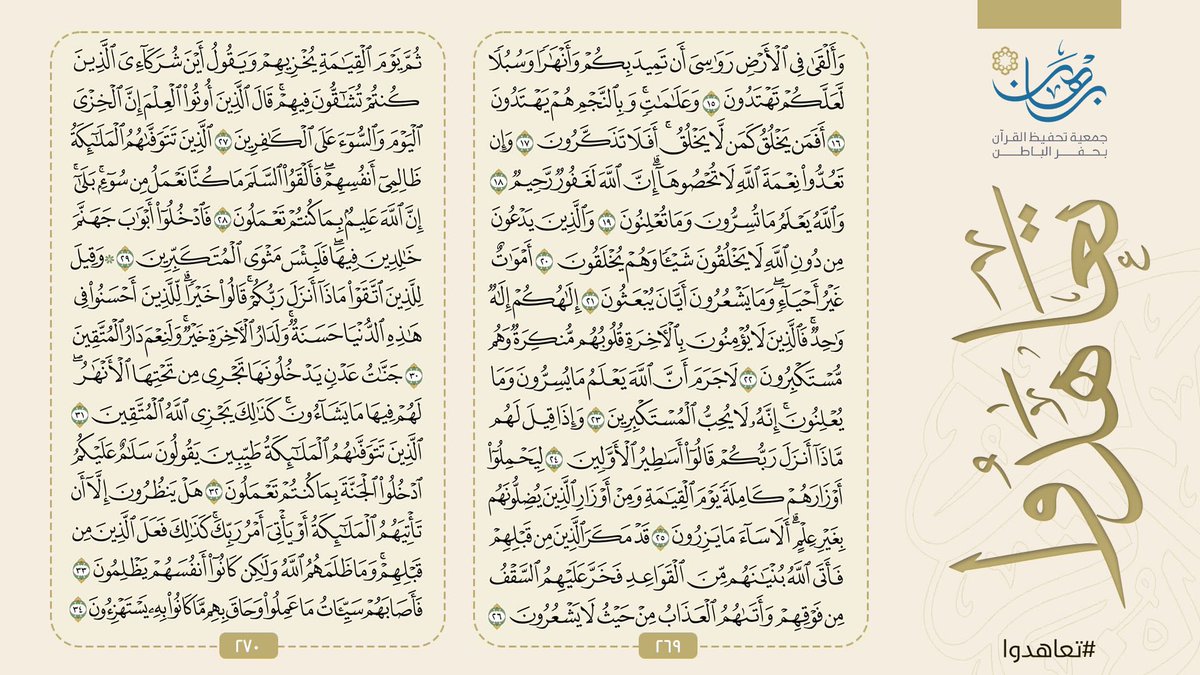 برهان
جمعية تحفيظ القرآن
بحفر الباطن
تعاهدوا
#تعاهدوا
وَأَلْقَىٰ فِي الْأَرْضِ رَوَاسِيَ أَن تَمِيدَ بِكُمْ وَأَنْهَارًا وَسُبُلًا
لَّعَلَّكُمْ تَهْتَدُونَ ١٥ وَعَلَامَاتٍ ۚ وَبِالنَّجْمِ هُمْ يَهْتَدُونَ
١٦ أَفَمَن يَخْلُقُ كَمَن لَّا يَخْلُقُ ۗ أَفَلَا تَذَكَّرُونَ ١٧ وَإِن
تَعُدُّوا نِعْمَةَ اللَّهِ لَا تُحْصُوهَا ۗ إِنَّ اللَّهَ لَغَفُورٌ رَّحِيمٌ ١٨
وَاللَّهُ يَعْلَمُ مَا تُسِرُّونَ وَمَا تُعْلِنُونَ ١٩ وَالَّذِينَ يَدْعُونَ
مِن دُونِ اللَّهِ لَا يَخْلُقُونَ شَيْئًا وَهُمْ يُخْلَقُونَ ٢٠ أَمْوَاتٌ
غَيْرُ أَحْيَاءٍ ۖ وَمَا يَشْعُرُونَ أَيَّانَ يُبْعَثُونَ ٢١ إِلَٰهُكُمْ إِلَٰهٌ
وَاحِدٌ ۚ فَالَّذِينَ لَا يُؤْمِنُونَ بِالْآخِرَةِ قُلُوبُهُم مُّنكِرَةٌ وَهُم
مُّسْتَكْبِرُونَ ٢٢ لَا جَرَمَ أَنَّ اللَّهَ يَعْلَمُ مَا يُسِرُّونَ وَمَا
يُعْلِنُونَ ۚ إِنَّهُ لَا يُحِبُّ الْمُسْتَكْبِرِينَ ٢٣ وَإِذَا قِيلَ لَهُم
مَّاذَا أَنزَلَ رَبُّكُمْ قَالُوا أَسَاطِيرُ الْأَوَّلِينَ ٢٤ لِيَحْمِلُوا
أَوْزَارَهُمْ كَامِلَةً يَوْمَ الْقِيَامَةِ وَمِنْ أَوْزَارِ الَّذِينَ يُضِلُّونَهُم
بِغَيْرِ عِلْمٍ ۗ أَلَا سَاءَ مَا يَزِرُونَ ٢٥ قَدْ مَكَرَ الَّذِينَ مِن قَبْلِهِمْ
فَأَتَى اللَّهُ بُنْيَانَهُم مِّنَ الْقَوَاعِدِ فَخَرَّ عَلَيْهِمُ السَّقْفُ
مِن فَوْقِهِمْ وَأَتَاهُمُ الْعَذَابُ مِنْ حَيْثُ لَا يَشْعُرُونَ ٢٦
٢٦٩
ثُمَّ يَوْمَ الْقِيَامَةِ يُخْزِيهِمْ وَيَقُولُ أَيْنَ شُرَكَائِيَ الَّذِينَ
كُنتُمْ تُشَاقُّونَ فِيهِمْ ۚ قَالَ الَّذِينَ أُوتُوا الْعِلْمَ إِنَّ الْخِزْيَ
الْيَوْمَ وَالسُّوءَ عَلَى الْكَافِرِينَ ٢٧ الَّذِينَ تَتَوَفَّاهُمُ الْمَلَائِكَةُ
ظَالِمِي أَنفُسِهِمْ ۖ فَأَلْقَوُا السَّلَمَ مَا كُنَّا نَعْمَلُ مِن سُوءٍ ۚ بَلَىٰ
إِنَّ اللَّهَ عَلِيمٌ بِمَا كُنتُمْ تَعْمَلُونَ ٢٨ فَادْخُلُوا أَبْوَابَ جَهَنَّمَ
خَالِدِينَ فِيهَا ۖ فَلَبِئْسَ مَثْوَى الْمُتَكَبِّرِينَ ٢٩ ۞ وَقِيلَ
لِلَّذِينَ اتَّقَوْا مَاذَا أَنزَلَ رَبُّكُمْ ۚ قَالُوا خَيْرًا ۗ لِّلَّذِينَ أَحْسَنُوا فِي
هَٰذِهِ الدُّنْيَا حَسَنَةٌ ۚ وَلَدَارُ الْآخِرَةِ خَيْرٌ ۚ وَلَنِعْمَ دَارُ الْمُتَّقِينَ
٣٠ جَنَّاتُ عَدْنٍ يَدْخُلُونَهَا تَجْرِي مِن تَحْتِهَا الْأَنْهَارُ ۖ
لَهُمْ فِيهَا مَا يَشَاءُونَ ۚ كَذَٰلِكَ يَجْزِي اللَّهُ الْمُتَّقِينَ ٣١
الَّذِينَ تَتَوَفَّاهُمُ الْمَلَائِكَةُ طَيِّبِينَ ۙ يَقُولُونَ سَلَامٌ عَلَيْكُمُ
ادْخُلُوا الْجَنَّةَ بِمَا كُنتُمْ تَعْمَلُونَ ٣٢ هَلْ يَنظُرُونَ إِلَّا أَن
تَأْتِيَهُمُ الْمَلَائِكَةُ أَوْ يَأْتِيَ أَمْرُ رَبِّكَ ۚ كَذَٰلِكَ فَعَلَ الَّذِينَ مِن
قَبْلِهِمْ ۚ وَمَا ظَلَمَهُمُ اللَّهُ وَلَٰكِن كَانُوا أَنفُسَهُمْ يَظْلِمُونَ ٣٣
فَأَصَابَهُمْ سَيِّئَاتُ مَا عَمِلُوا وَحَاقَ بِهِم مَّا كَانُوا بِهِ يَسْتَهْزِئُونَ ٣٤
٢٧٠